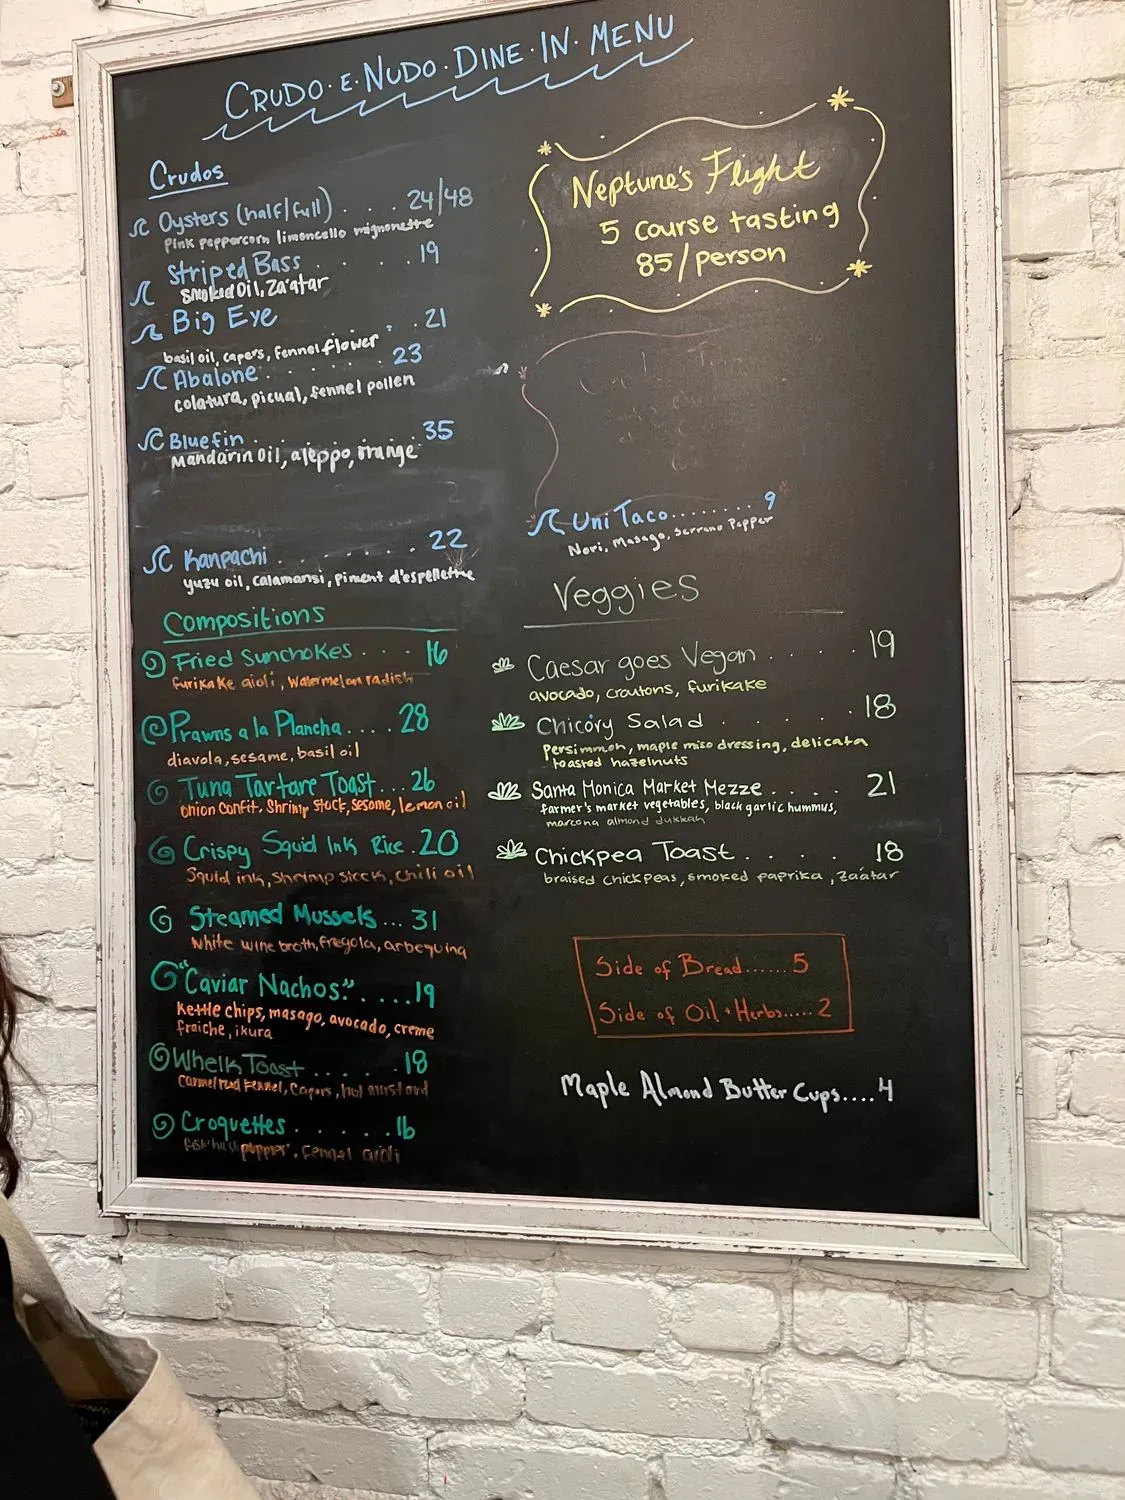 CRUDO · E · NUDO · DINE · IN · MENU
Crudos
Oysters (half/full) . . . 24/48
pink peppercorn limoncello mignonette
Striped Bass . . . 19
Smoked Oil, Za'atar
Big Eye . . 21
basil oil, capers, fennel flower
Abalone . . . . . . 23
colatura, picual, fennel pollen
Bluefin . . . . . . 35
Mandarin Oil, aleppo, orange
Kanpachi . . . . . . . 22
yuzu oil, calamansi, piment d'espellette
Compositions
Fried Sunchokes . . . 16
furikake aioli, Watermelon radish
Prawns a la Plancha.... 28
diavola, sesame, basil oil
Tuna Tartare Toast... 26
Onion Confit, Shrimp Stock, sesame, lemon oil
Crispy Squid Ink Rice . 20
Squid ink, Shrimp stock, chili oil
Steamed Mussels ... 31
White wine broth, Fregola, arbequina
"Caviar Nachos". ....19
Kettle chips, masago, avocado, creme
fraiche, ikura
Whelk Toast . . . . . 18
Capers, hot mustard
Croquettes . . . . . . 16
fennel aioli
Neptune's Flight
5 course tasting
85/person
Uni Taco........ 9
Nori, Masago, Serrano Pepper
Veggies
Caesar goes Vegan . . . . 19
avocado, croutons, furikake
Chicory Salad . . . . 18
Persimmon, maple miso dressing, delicata
toasted hazelnuts
Santa Monica Market Mezze . . . . 21
farmer's market vegetables, black garlic hummus,
marcona almond dukkah
Chickpea Toast . . . . 18
braised chickpeas, smoked paprika, za'atar
Side of Bread...... 5
Side of Oil + Herbs..... 2
Maple Almond Butter Cups.... 4